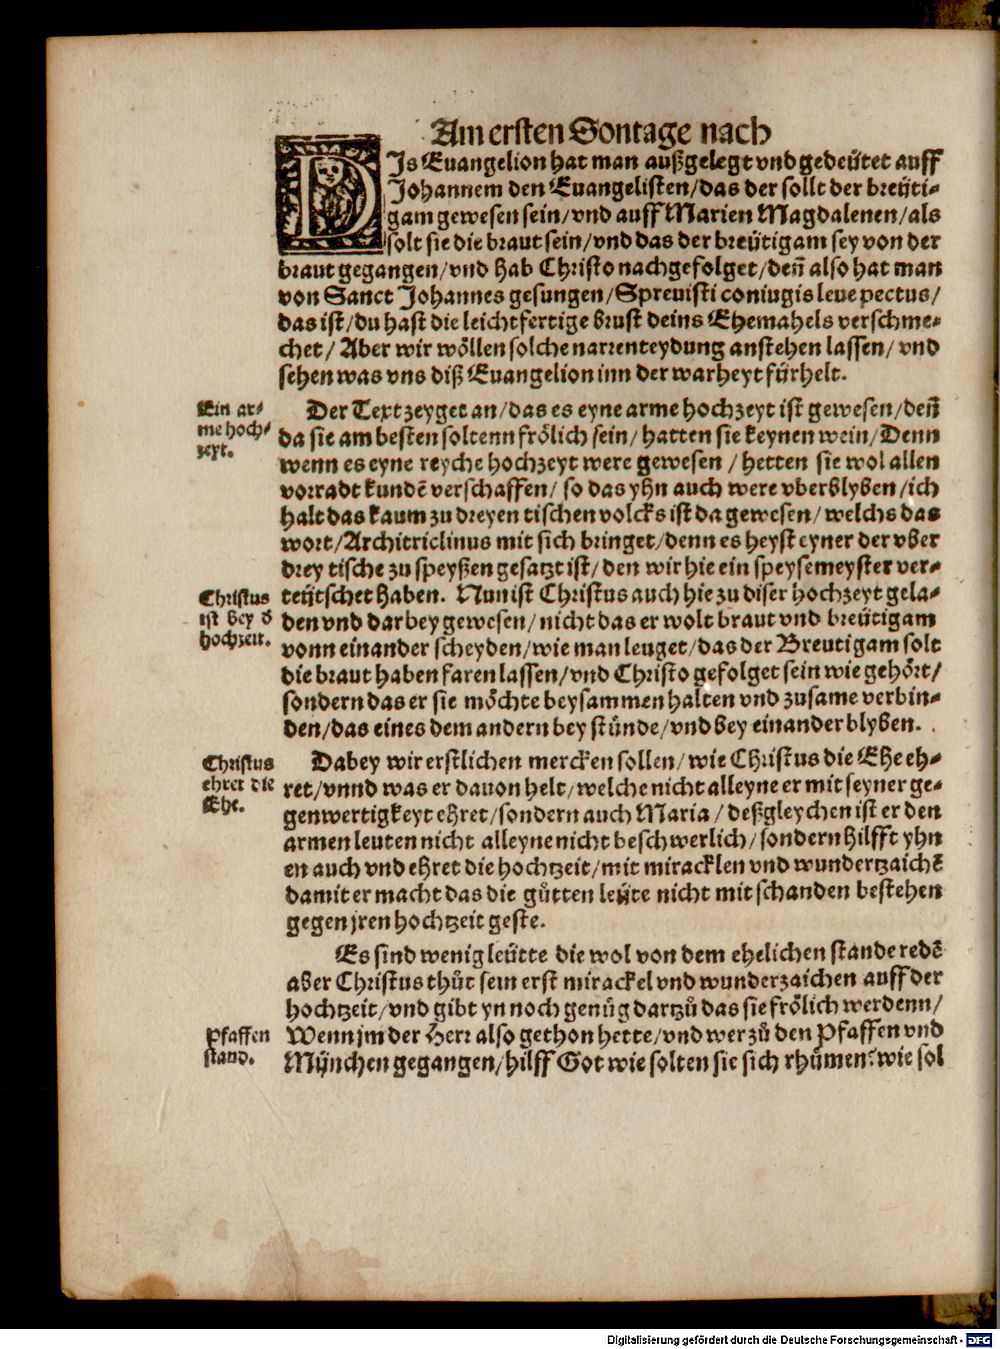 Am ersten Sontage nach
DIs Euangelion hat man außgelegt vnd gedeütet auff
Johannem den Euangelisten/das der sollt der breüti-
gam gewesen sein/vnd auff Marien Magdalenen/als
solt sie die braut sein/vnd das der breütigam sey von der
braut gegangen/vnd hab Christo nachgefolget/deñ also hat man
von Sanct Johannes gesungen/Spreuisti coniugis leue pectus/
das ist/du hast die leichtfertige brust deins Ehemahels verschme-
chet/Aber wir wöllen solche narrenteydung anstehen lassen/vnd
sehen was vns diß Euangelion inn der warheyt fürhelt.
Ein ar-
me hoch-
zeyt.
Der Text zeyget an/das es eyne arme hochzeyt ist gewesen/deñ
da sie am besten soltenn frölich sein/hatten sie keynen wein/Denn
wenn es eyne reyche hochzeyt were gewesen/hetten sie wol allen
vorradt kundẽ verschaffen/so das yhn auch were vberblyben/ich
halt das kaum zu dreyen tischen volcks ist da gewesen/welchs das
wort/Architriclinus mit sich bringet/denn es heyst eyner der vber
drey tische zu speyßen gesatzt ist/den wir hie ein speysemeyster ver-
Christus
ist bey d̕
hochzeit.
teütschet haben. Nun ist Christus auch hie zu diser hochzeyt gela-
den vnd darbey gewesen/nicht das er wolt braut vnd breütigam
vonn einander scheyden/wie man leuget/das der Breutigam solt
die braut haben faren lassen/vnd Christo gefolget sein wie gehört/
sondern das er sie möchte beysammen halten vnd zusame verbin-
den/das eines dem andern bey stünde/vnd bey einander blyben.
Christus
ehret die
Ehe.
Dabey wir erstlichen mercken sollen/wie Christus die Ehe eh-
ret/vnnd was er dauon helt/welche nicht alleyne er mit seyner ge-
genwertigkeyt ehret/sondern auch Maria/deßgleychen ist er den
armen leuten nicht alleyne nicht beschwerlich/sondern hilfft yhn
en auch vnd ehret die hochtzeit/mit miracklen vnd wundertzaichẽ
damit er macht das die gůtten leüte nicht mit schanden bestehen
gegen jren hochtzeit geste.
Es sind wenig leütte die wol von dem ehelichen stande redẽ
aber Christus thůt sein erst mirackel vnd wunderzaichen auff der
hochtzeit/vnd gibt yn noch genůg dartzů das sie frölich werdenn/
Pfaffen
stand.
Wenn jm der Herr also gethon hette/vnd wer zů den Pfaffen vnd
Mÿnchen gegangen/hilff Got wie solten sie sich rhůmen? wie sol
Digitalisierung gefördert durch die Deutsche Forschungsgemeinschaft - DFG